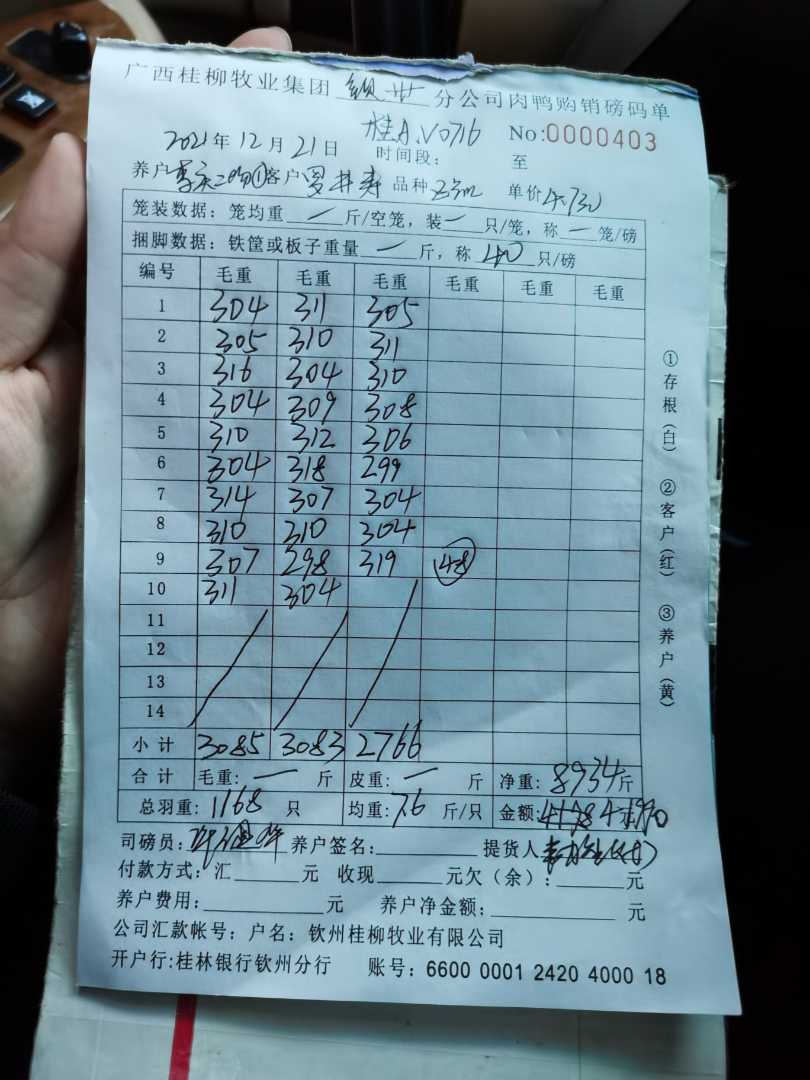 广西桂柳牧业集团 钦州 分公司肉鸭购销磅码单
2021年12月21日 桂A.V0716 No:0000403
时间段： 至
养户 客户 罗 寿 品种 单价4.730
笼装数据：笼均重 一 斤/空笼，装 一 只/笼，称 一 笼/磅
捆脚数据：铁筐或板子重量 一 斤，称 40 只/磅
编号 毛重 毛重 毛重 毛重 毛重 毛重
1 304 311 305
2 305 310 311
3 316 304 310
4 304 309 308
5 310 312 306
6 304 318 299
7 314 307 304
8 310 310 304
9 307 298 319 48
10 311 304
11
12
13
14
小计 3085 3083 2766
合计 毛重：一 斤 皮重：一 斤 净重：8934斤
总羽重：1168 只 均重：7.6 斤/只 金额:
司磅员： 养户签名： 提货人
付款方式：汇 元 收现 元欠（余）： 元
养户费用： 元 养户净金额： 元
公司汇款帐号：户名：钦州桂柳牧业有限公司
开户行:桂林银行钦州分行 账号：6600 0001 2420 4000 18
①存根（白） ②客户（红） ③养户（黄）